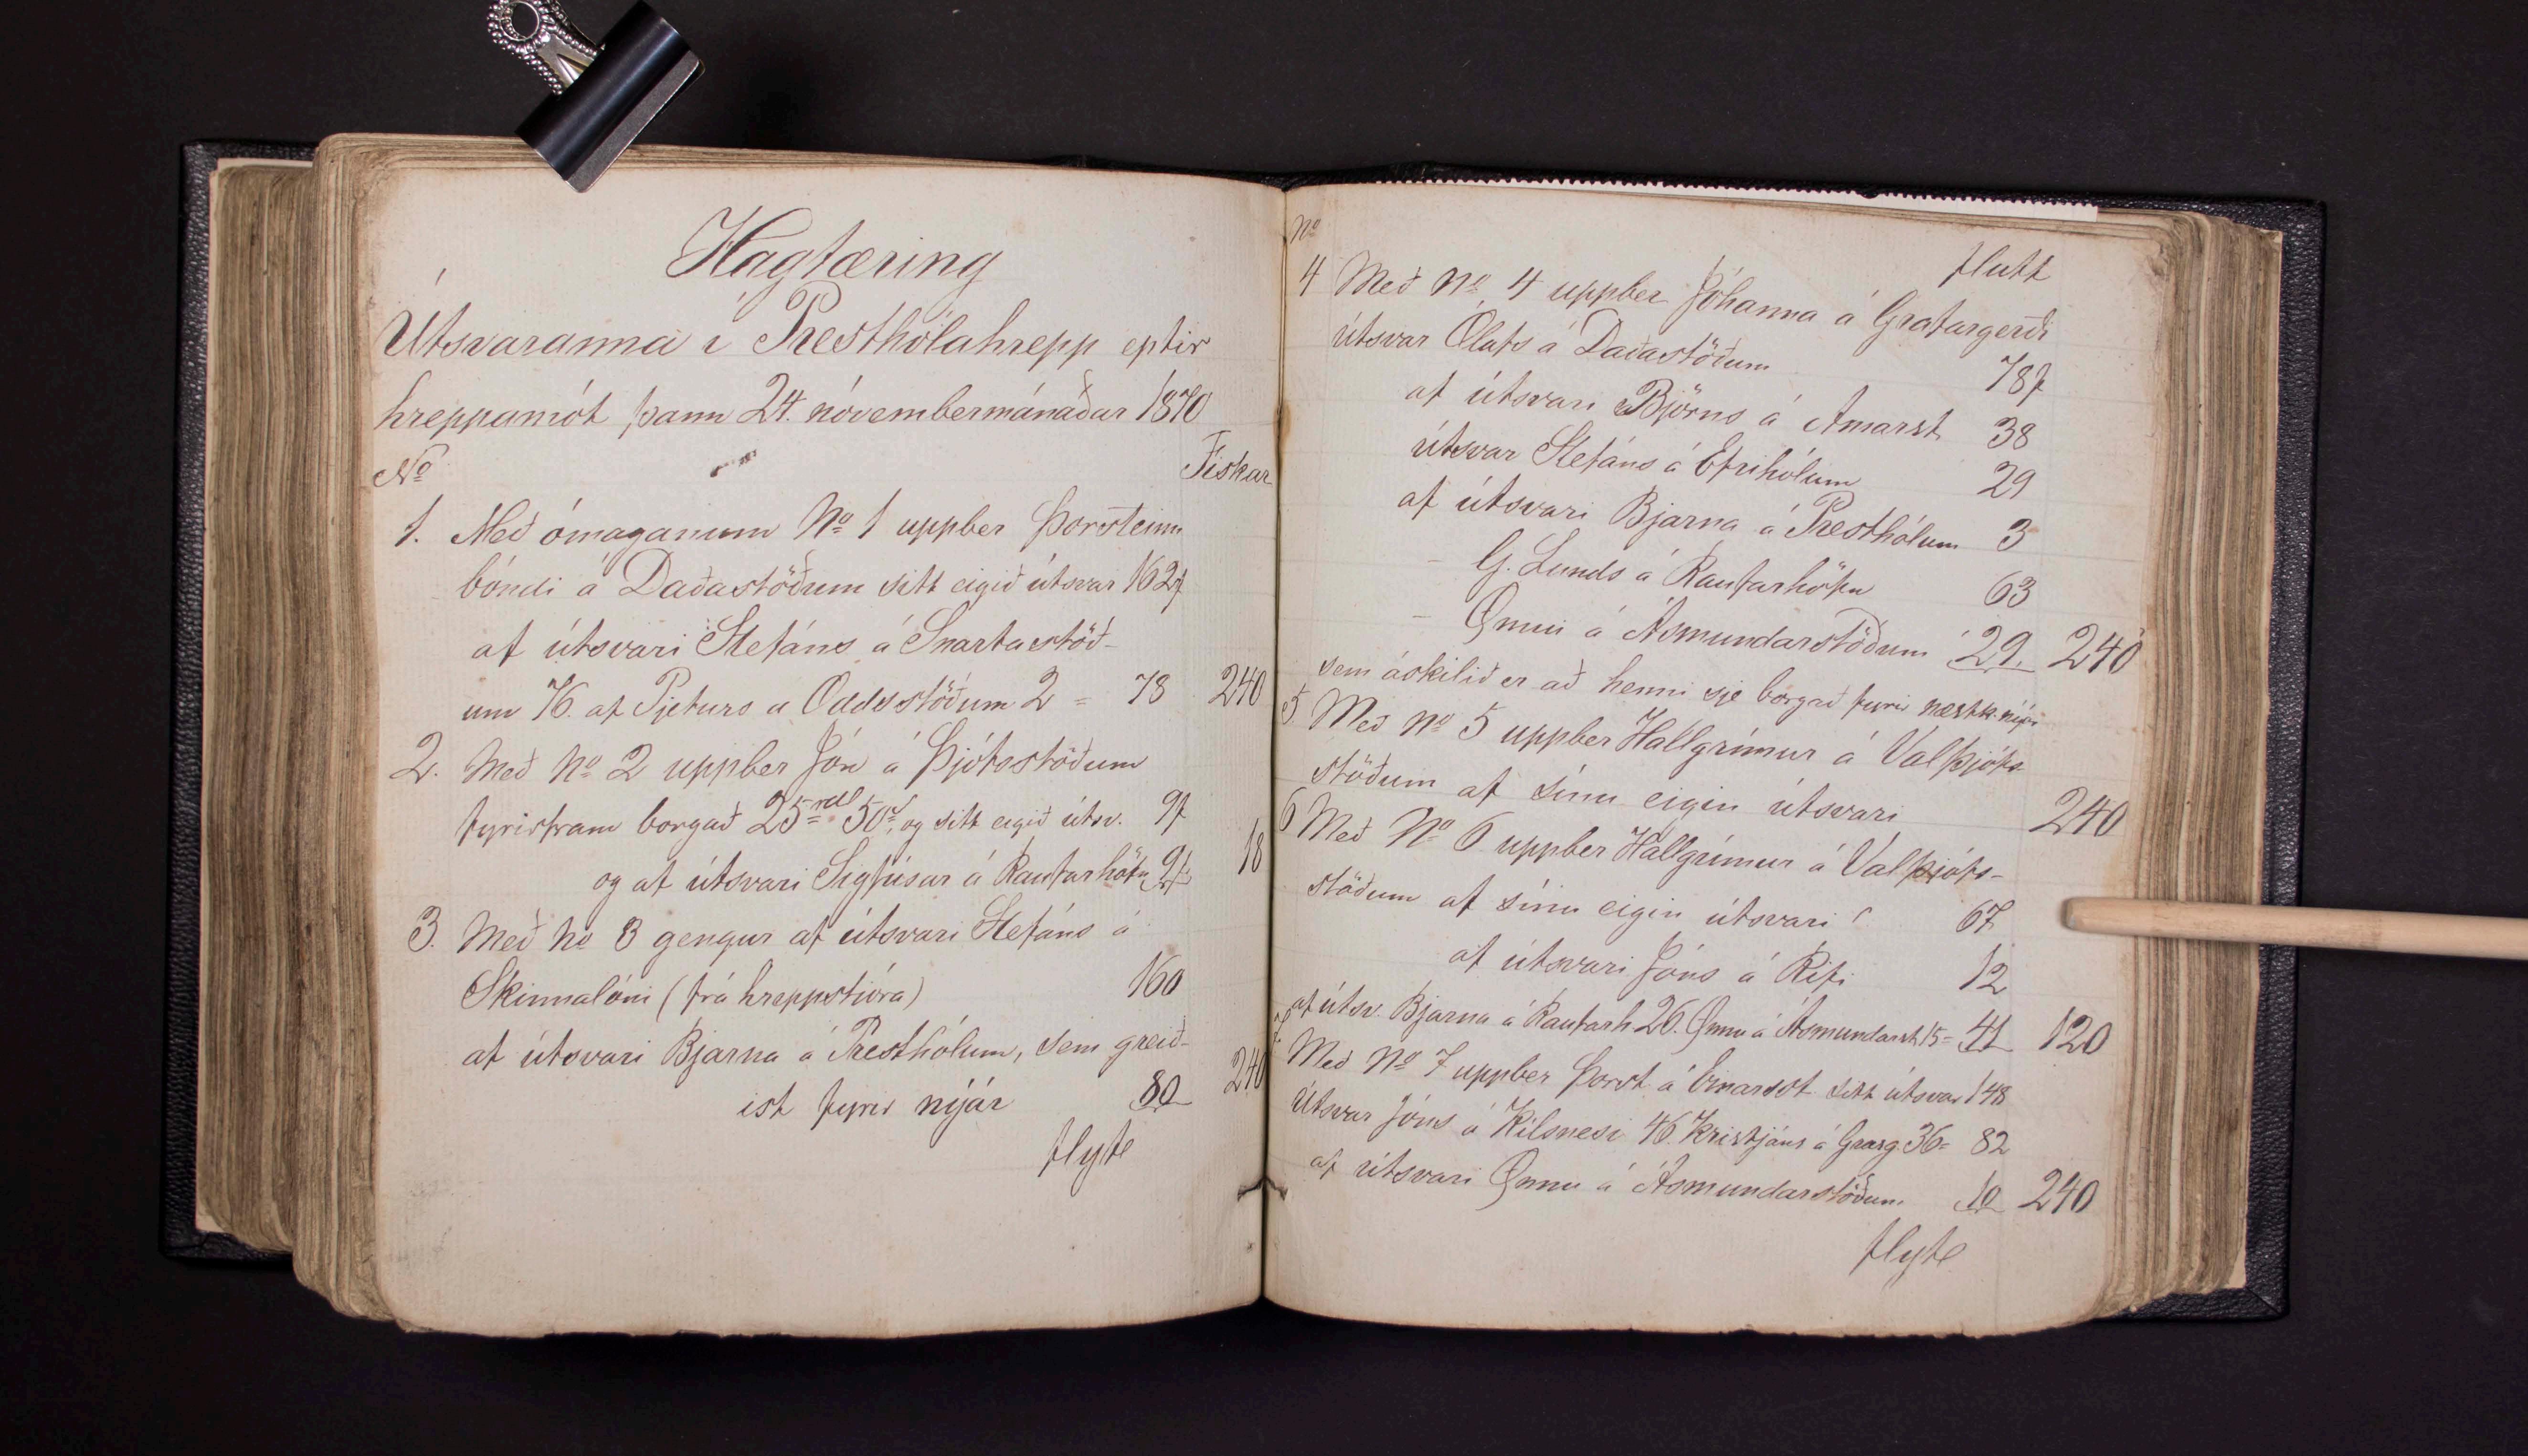 Hagfæring
Útsvaranna í Presthólahrepp eptir
hreppamót þann 24. nóvembermánaðar 1870
No Fiskar
1. Með ómaganum No 1 uppber Þorsteinn
bóndi á Daðastöðum sitt eigið útsvar 162f
af útsvari Stefáns á Snartastöð-
um 76. af Pjeturs á Oddsstöðum 2 = 78 240
2. Með No 2 uppber Jón á Þjófsstöðum
fyrirfram borgað 25rdl 50s, og sitt eigið útsv. 9f
og af útsvari Sigfúsar á Raufarhöfn 9f. 18
3. Með No 3 gengur af útsvari Stefáns á
Skinnalóni (frá hreppstjóra) 160
af útsvari Bjarna á Presthólum, sem greið-
ist fyrir nýár 80 240
flyte
No
flutt
4 Með No 4 uppber Jóhanna á Grafargerði
útsvar Ólafs á Daðastöðum 78f
af útsvari Björns á Arnarst. 38
útsvar Stefáns á Efrihólum 29
af útsvari Bjarna á Presthólum 3
- G. Lunds á Raufarhöfn 63
- Önnu á Ásmundarstöðum 29. 240
sem áskilið er að henni sje borgað fyrir næstk. nýár
5. Með No 5 uppber Hallgrímur á Valþjófs
stöðum af sínu eigin útsvari 240
6 Með No 6 uppber Hallgrímur á Valþjófs-
stöðum af sínu eigin útsvari 67
af útsvari Jóns á Rifi 12
af útsv. Bjarna á Raufarh 26. Önnu á Ásmundarst 15 = 41 120
7. Með No 7 uppber Þorst á Einarsst. sitt útsvar 148
Útsvar Jóns á Kilsnesi 46. Kristjáns á Grasg. 36 = 82
af útsvari Önnu á Ásmundarstöðum 10 240
flyte